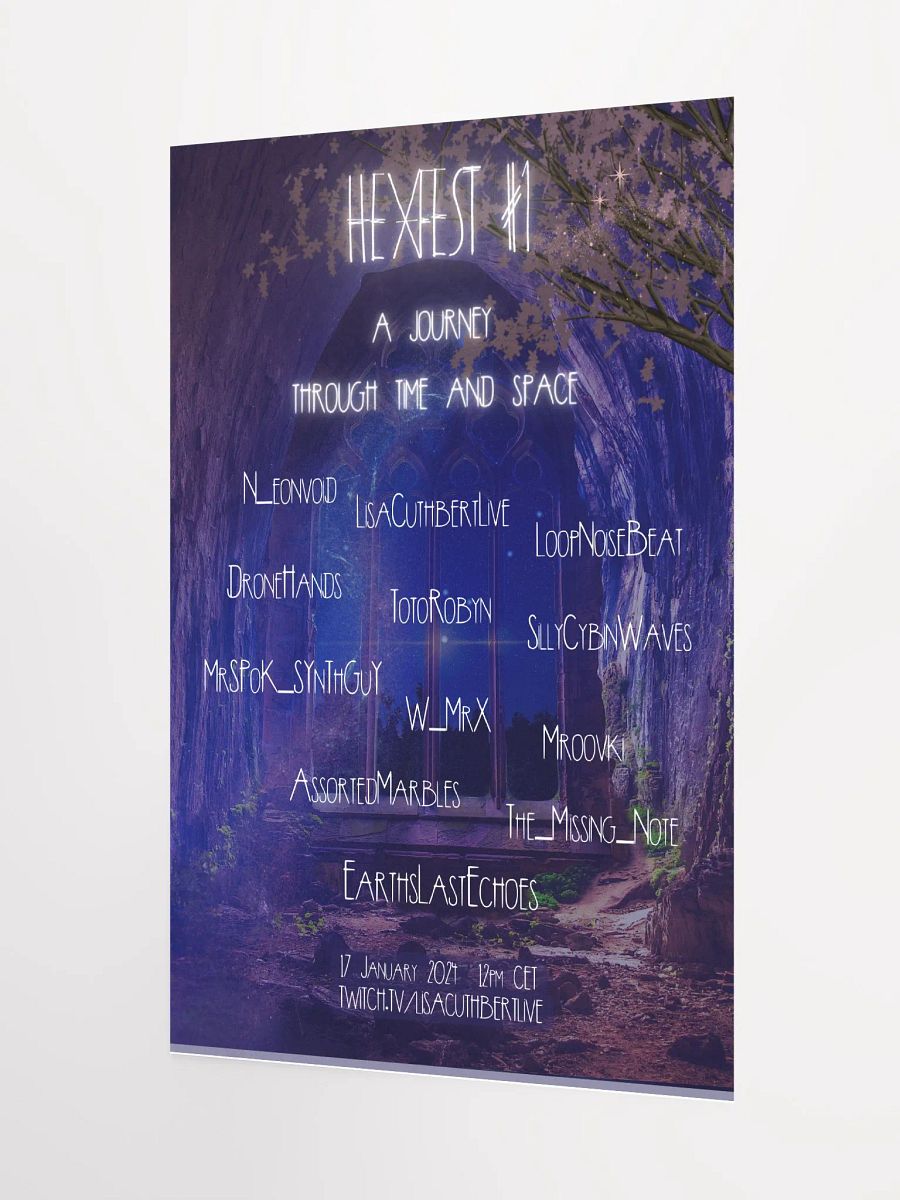 HEXFEST #1
A JOURNEY
THROUGH TIME AND SPACE
N_EONVOID
LISACUTHBERTLIVE
LOOPNOISEBEAT
DRONEHANDS
TOTOROBYN
SILLYCYBINWAVES
MRSPOK_SYNTHGUY
W_MRX
MROOVKI
ASSORTEDMARBLES
THE_MISSING_NOTE
EARTHSLASTECHOES
17 JANUARY 2024 12PM CET
TWITCH.TV/LISACUTHBERTLIVE